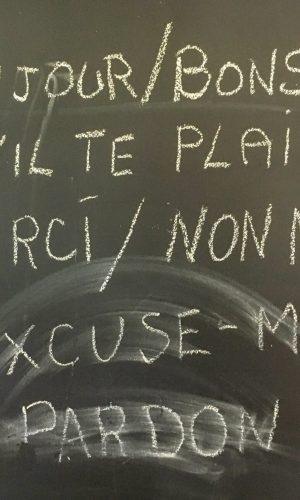 JOUR/BONS
'IL TE PLAI
RCI/ NON M
XCUSE-M
PARDON